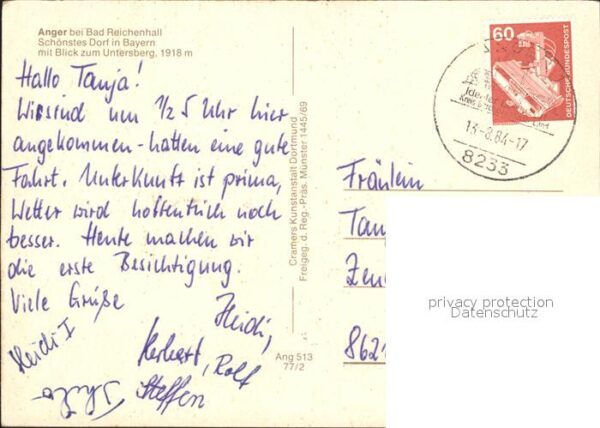 Anger bei Bad Reichenhall
Schönstes Dorf in Bayern
mit Blick zum Untersberg, 1918 m
Hallo Tanja!
Wir sind um 1/2 5 Uhr hier
angekommen - hatten eine gute
Fahrt. Unterkunft ist prima,
Wetter wird hoffentlich noch
besser. Heute machen wir
die erste Besichtigung.
Viele Grüße
Heidi,
Heidi I
Herbert, Rolf
Steffen
Thilo
Cramers Kunstanstalt Dortmund
Freigeg. d. Reg.-Präs. Münster 1445/69
Ang 513
77/2
60
DEUTSCHE BUNDESPOST
13.-8.84-17
8233
Fräulein
Tan
Zen
862
privacy protection
Datenschutz